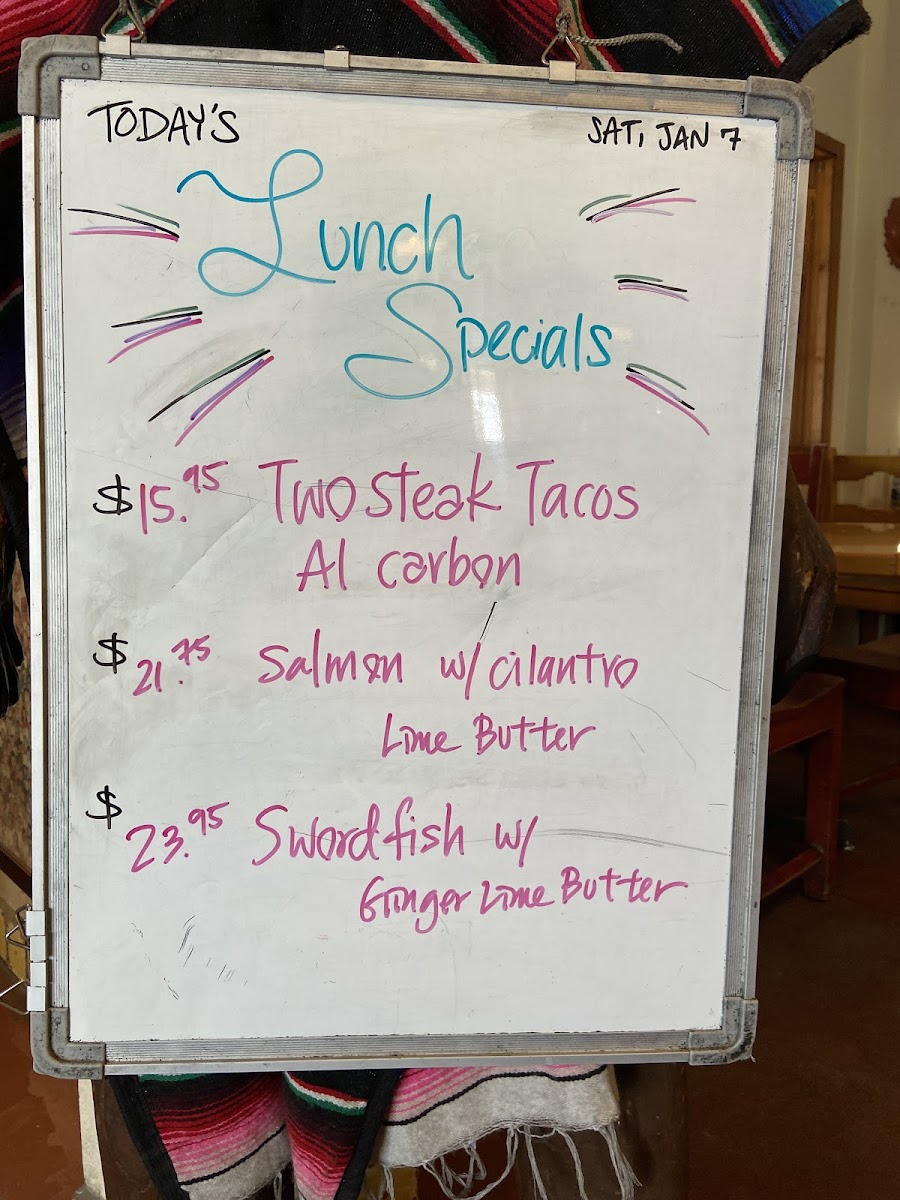 TODAY'S SAT, JAN 7
Lunch
Specials
$15.95 Two steak Tacos
Al carbon
$21.75 Salmon w/ cilantro
Lime Butter
$23.95 Swordfish w/
Ginger Lime Butter